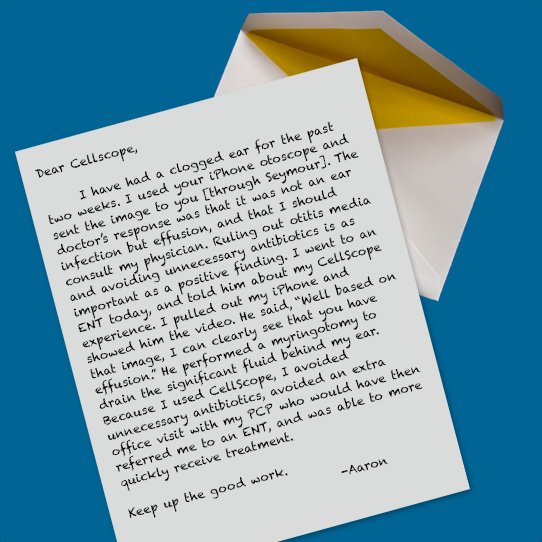 Dear Cellscope,
I have had a clogged ear for the past
two weeks. I used your iPhone otoscope and
sent the image to you [through Seymour]. The
doctor's response was that it was not an ear
infection but effusion, and that I should
consult my physician. Ruling out otitis media
and avoiding unnecessary antibiotics is as
important as a positive finding. I went to an
ENT today, and told him about my CellScope
experience. I pulled out my iPhone and
showed him the video. He said, "Well based on
that image, I can clearly see that you have
effusion." He performed a myringotomy to
drain the significant fluid behind my ear.
Because I used CellScope, I avoided
unnecessary antibiotics, avoided an extra
office visit with my PCP who would have then
referred me to an ENT, and was able to more
quickly receive treatment.
Keep up the good work. -Aaron